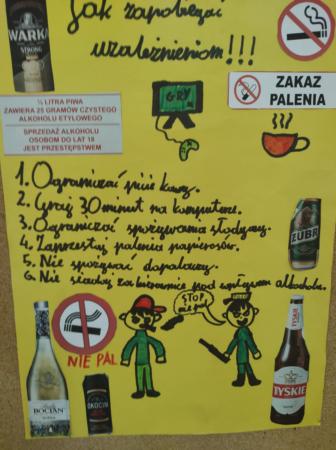 Jak zapobiegać
uzależnieniom!!!
WARKA
STRONG
½ LITRA PIWA
ZAWIERA 25 GRAMÓW CZYSTEGO
ALKOHOLU ETYLOWEGO
SPRZEDAŻ ALKOHOLU
OSOBOM DO LAT 18
JEST PRZESTĘPSTWEM
GRY
ZAKAZ
PALENIA
1. Ograniczać picie kawy.
2. Graj 30 minut na komputerze.
3. Ograniczać spożywania słodyczy.
4. Zaprzestaj palenia papierosów.
5. Nie spożywać dopalaczy.
6. Nie siadaj za kierownice pod wpływem alkoholu.
ŻUBR
NIE PAL
STOP
nie pal
BOCIAN
OKOCIM
TYSKIE